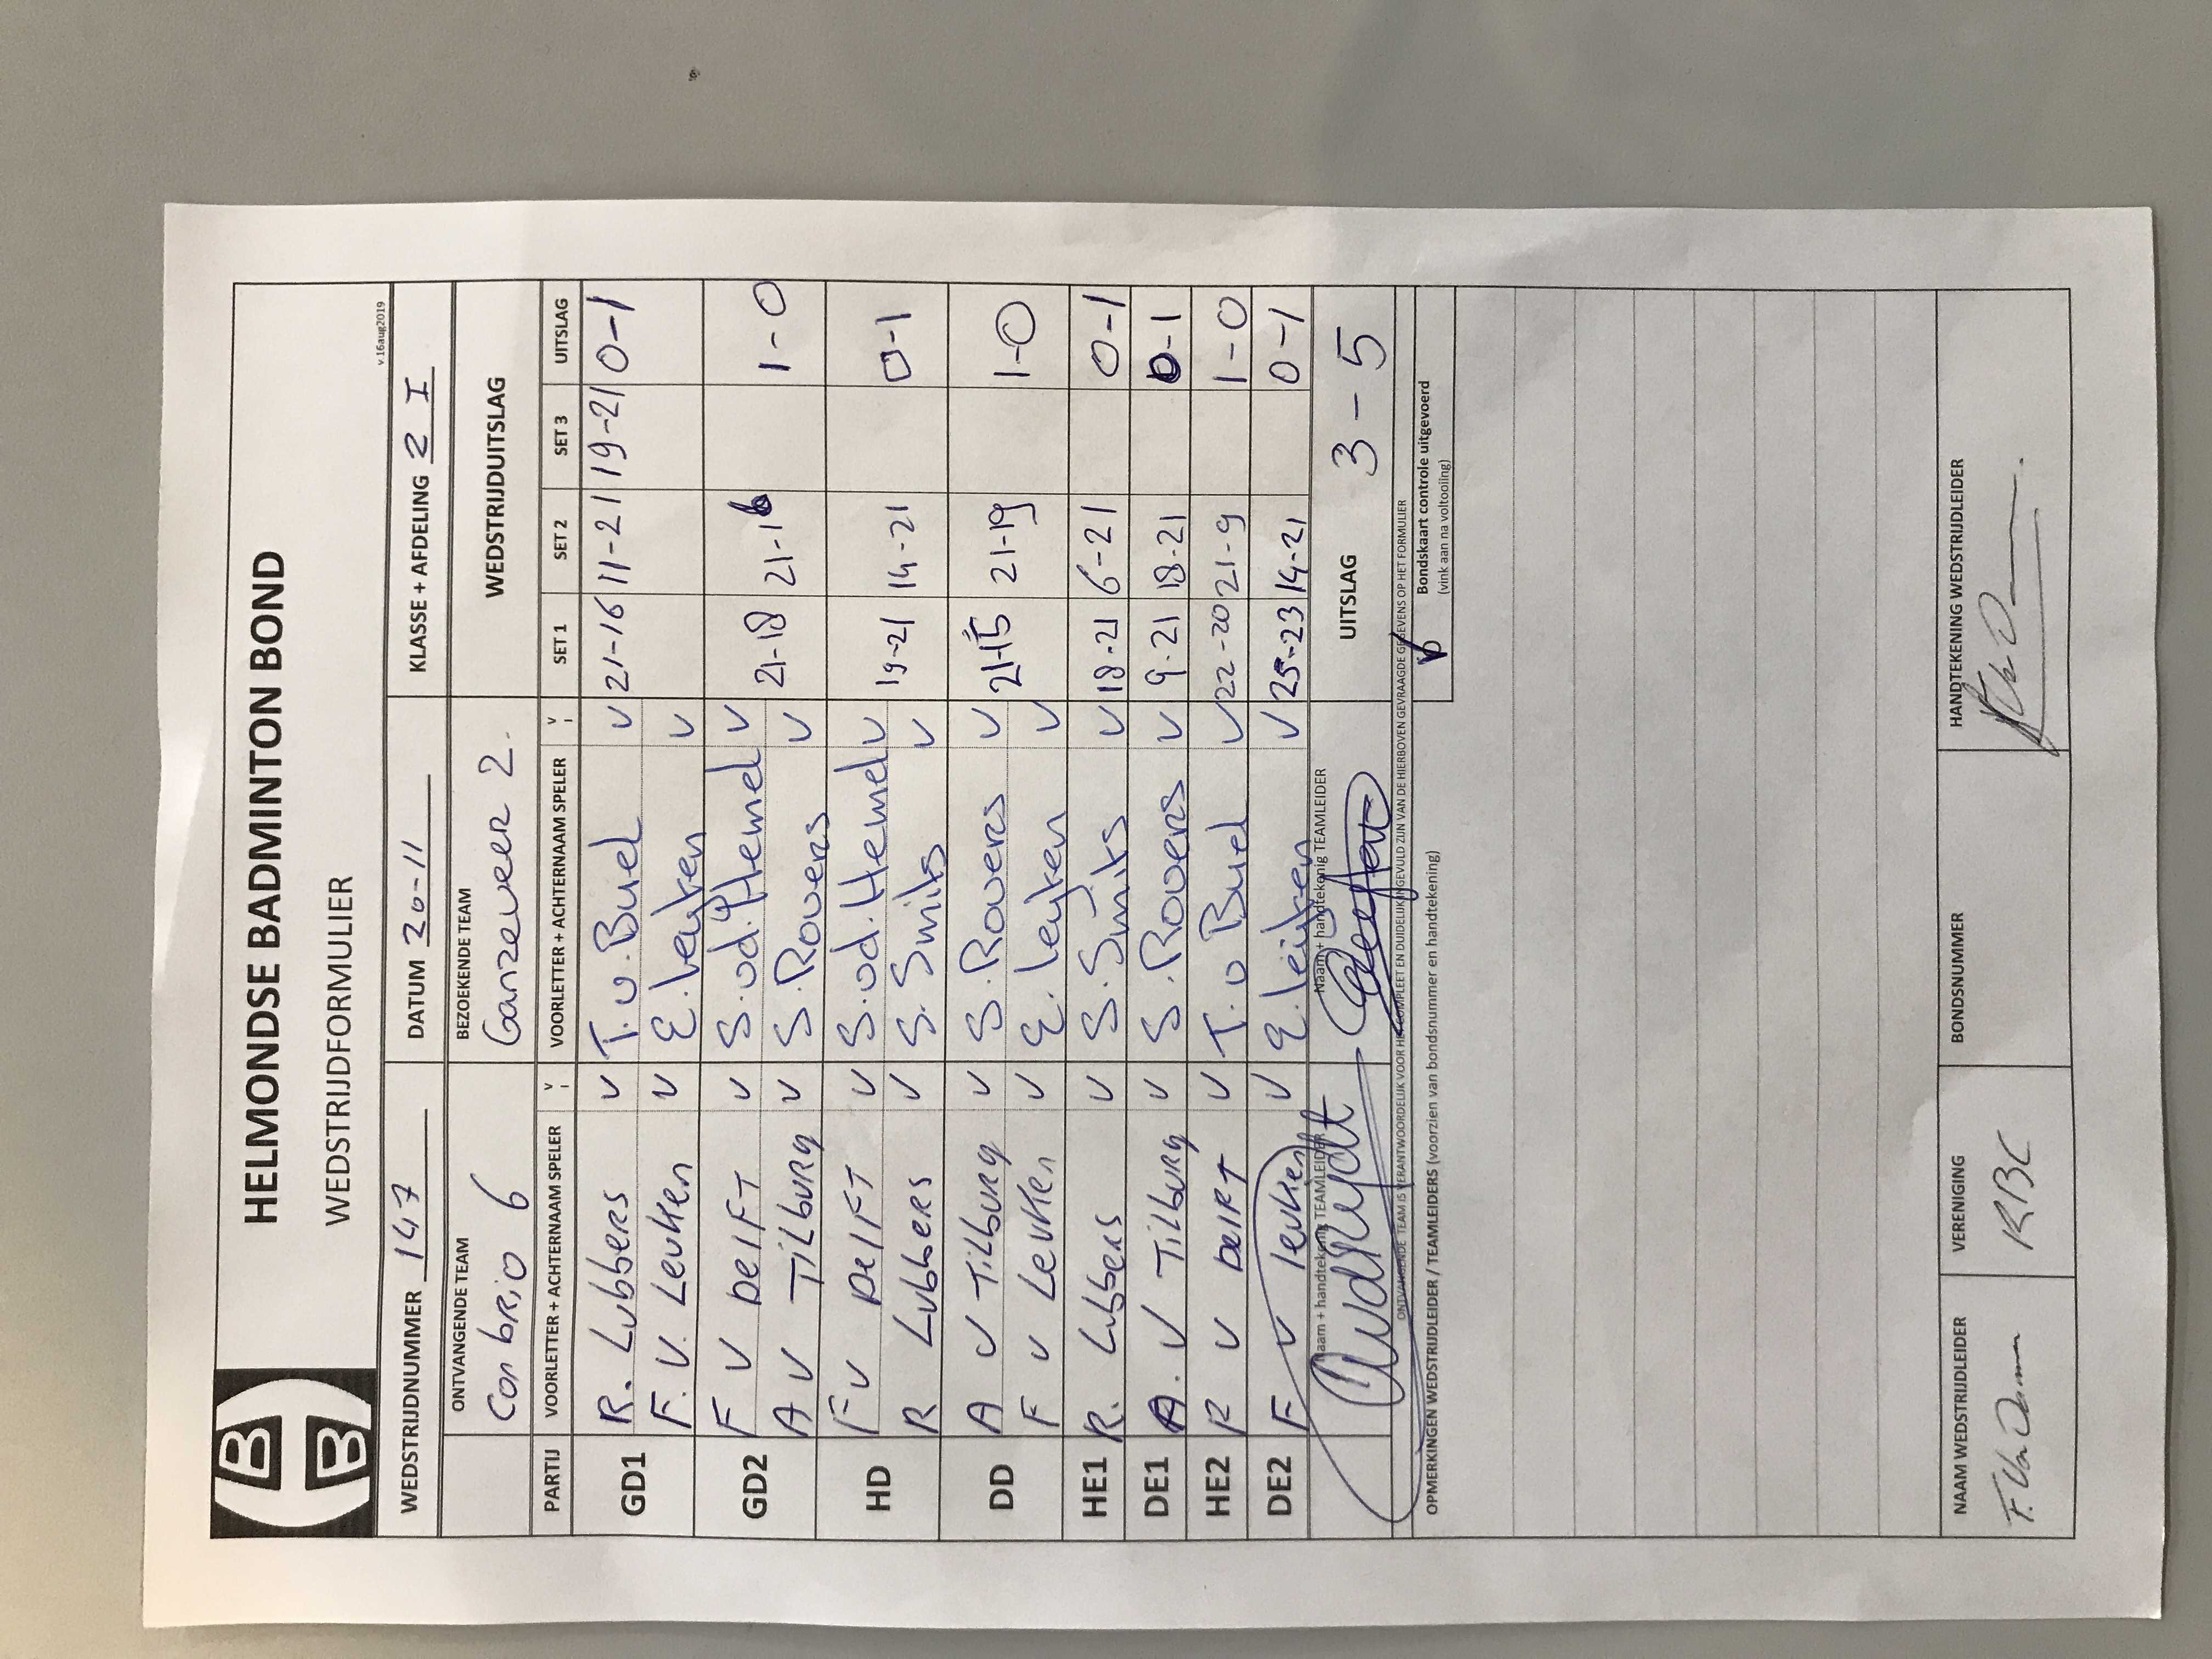 HELMONDSE BADMINTON BOND
WEDSTRIJDFORMULIER
v.16aug2019
WEDSTRIJDNUMMER 147 DATUM 20-11 KLASSE + AFDELING 2 I
ONTVANGENDE TEAM BEZOEKENDE TEAM WEDSTRIJDUITSLAG
Con brio 6 Ganzeveer 2.
PARTIJ VOORLETTER + ACHTERNAAM SPELER V VOORLETTER + ACHTERNAAM SPELER V SET 1 SET 2 SET 3 UITSLAG
GD1 R. Lubbers v T. v. Buel v 21-16 11-21 19-21 0-1
F. V. Leuken v E. Leuken v
GD2 F V Delft v S. vd. Hemel v
A V Tilburg v S. Rovers v 21-18 21-16 1-0
HD F v Delft v S. vd. Hemel v
R Lubbers v S. Smits v 19-21 14-21 0-1
DD A V Tilburg v S. Rovers v
F v Leuken v E. Leuken v 21-15 21-19 1-0
HE1 R. Lubbers v S. Smits v 18-21 6-21 0-1
DE1 A. V Tilburg v S. Rovers v 9-21 18-21 0-1
HE2 R V Delft v T. v Buel v 22-20 21-9 1-0
DE2 F V Leuken v E. Leuken v 25-23 14-21 0-1
Naam + handtekenig TEAMLEIDER Naam + handtekenig TEAMLEIDER UITSLAG 3-5
ONTVANGENDE TEAM IS VERANTWOORDELIJK VOOR HET COMPLEET EN DUIDELIJK INGEVULD ZIJN VAN DE HIERBOVEN GEVRAAGDE GEGEVENS OP HET FORMULIER
Bondskaart controle uitgevoerd
(vink aan na voltooiing)
OPMERKINGEN WEDSTRIJDLEIDER / TEAMLEIDERS (voorzien van bondsnummer en handtekening)
NAAM WEDSTRIJDLEIDER VERENIGING BONDSNUMMER HANDTEKENING WEDSTRIJDLEIDER
F. Van Damme RBC